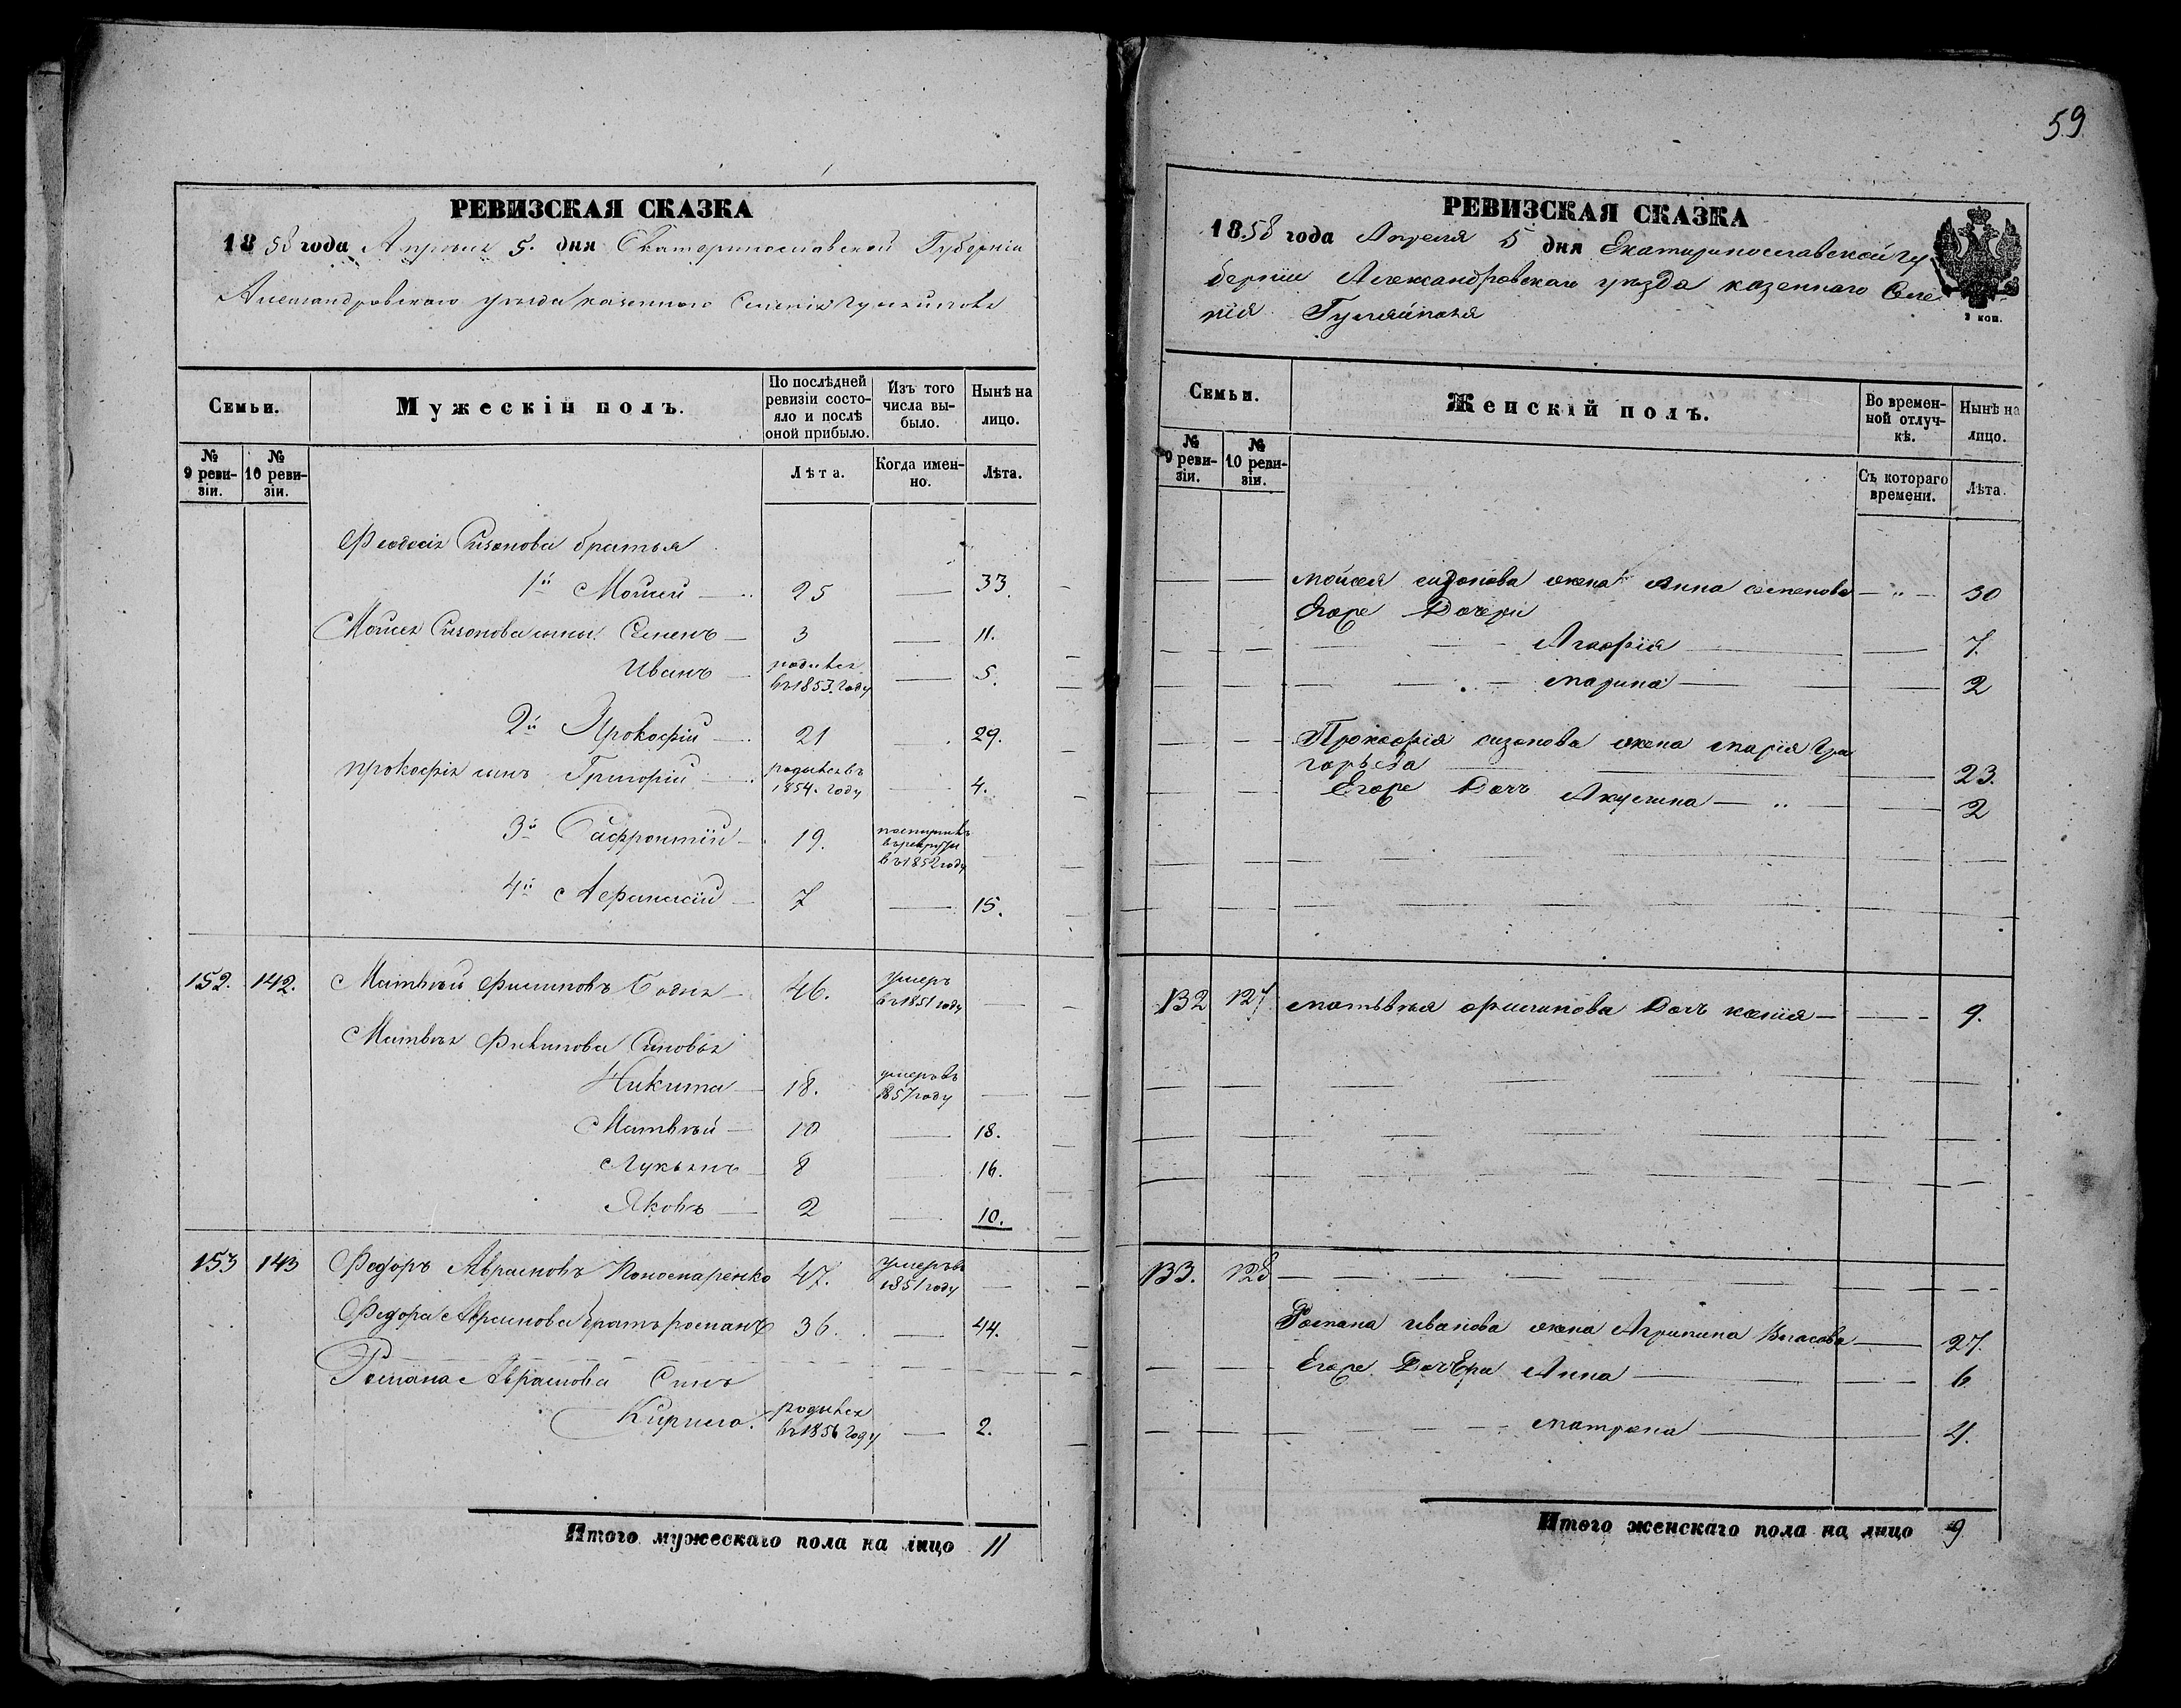 59
РЕВИЗСКАЯ СКАЗКА
1858 года Апреля 5. дня Екатеринославской Губерніи
Александровскаго уезда казенного Селенія Гуляйполя
Семьи.
Мужескій полъ.
По послѣдней ревизіи состояло и послѣ оной прибыло.
Изъ того числа выбыло.
Нынѣ на лицо.
№ 9 ревизіи.
№ 10 ревизіи.
Лѣта.
Когда именно.
Лѣта.
Феодосія Сизонова братья
1й Мойсей 25 33.
Мойсея Сизонова сыны Семенъ 3 11.
Иванъ родився въ 1853. году 5.
2й Прокофій 21 29.
Прокофія сынъ Григорій родився въ 1854. году 4.
3й 19. въ рекруты въ 1852 году
4й Афанасій 7 15.
152. 142. Матвѣй Филиповъ Бодня 46. умеръ въ 1851 году
Матвѣя Филипова Сыновья
Никита 18. умеръ въ 1857 году
Матвѣй 10 18.
Лукьянъ 8 16.
Яковъ 2 10.
153 143 Федоръ Аврамовъ Кономаренко 47. умеръ въ 1851 году
Федора Аврамова братъ романъ 36. 44.
Романа Аврамова Сынъ
Кирило. родився въ 1856 году 2.
Итого мужескаго пола на лицо 11
РЕВИЗСКАЯ СКАЗКА
1858 года Апреля 5 дня Екатеринославской Гу
берніи Александровскаго уѣзда казеннаго Селе
нія Гуляйполя
2 коп.
Семьи.
Женскій полъ.
Во временной отлучкѣ.
Нынѣ на лицо.
№ 9 ревизіи.
№ 10 ревизіи.
Съ котораго времени.
Лѣта.
Мойсея сизонова жена Анна семенова 30
Егоре Дочери
Агафія 7.
марина 2
Прокофія сизонова жена марія Гри
горьева 23.
Егоре Дочь Акулина 2
132 127 матвѣя филипова Дочь ксенія 9.
133. 128
Романа иванова жена Агрипина Власова 27.
Егоре Дочери Анна 6
матрена 4.
Итого женскаго пола на лицо 9